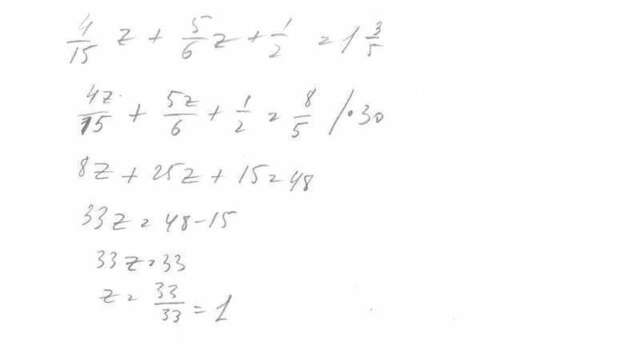 4/15 z + 5/6 z + 1/2 = 1 3/5
4z/15 + 5z/6 + 1/2 = 8/5 /·30
8z + 25z + 15 = 48
33z = 48 - 15
33z = 33
z = 33/33 = 1